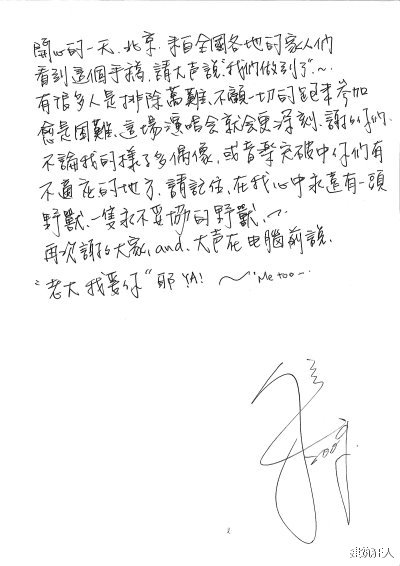 開心的一天、北京、来自全國各地的家人們
看到這個手稿、請大声說"我們做到了"～.
有很多人是排除萬難、不顧一切的跑來参加
愈是困難、這場演唱会就会更深刻、謝謝你们.
不論我的樣子多偶像、或音樂突破中你们有
不適应的地方、請記住、在我心中永遠有一頭
野獸、一隻永不妥協的野獸、
再次謝謝大家、and、大声在电腦前說.
"老大我要你"耶 YA! ～ "Me too～.
2009
2
建筑狂人